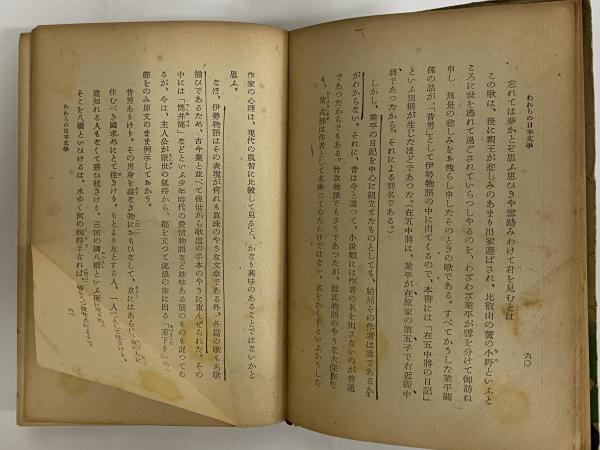 われらの日本文學
六〇
忘れては夢かとぞ思ふ思ひきや雪踏みわけて君を見むとは
この歌は、後に親王が悲しみのあまり出家遊ばされ、比叡山の麓の小野といふと
ころに世を逃れて過ごされていらつしやるのを、わざわざ業平が雪を分けて御訪ね
申し、無量の悲しみをお洩らし申したそのときの歌である。すべてかうした業平關
係の話が、「昔男」として伊勢物語の中に出てくるので、本書には「在五中將の日記」
といふ別稱が生じたほどであつた。(在五中將は、業平が在原家の第五子で右近衞中
將であつたから、それによる別名である。)
しかし、業平の日記を中心に組立てたものとしても、結局その作者は誰であるか
がわからない。それに、昔は今と違つて、小說類には作者の名を出さないのが普通
であつたからでもある。竹取物語でもさうであつたが、源氏物語のやうな大傑作で
も、紫式部は作者として名乘つてゐたわけではない。名をかくすといふかうした
作家の心理は、現代の風習に比較して見ると、かなり興味のあることではないかと
思ふ。
なほ、伊勢物語はその表現が何れも眞珠のやうな文章である外、各篇の歌も名歌
揃ひであるため、古今集と並べて後世から歌道の手本のやうに重んぜられた。その
中には「筒井筒」などといふ少年時代の愛情物語など妙味ある筋のものも混つてゐ
るが、今は、主人公が厭世の氣持から、都を立つて流浪の旅に出る「東下り」の
節をのみ原文のまま例示しておかう。
昔男ありけり。その男身を益なき物におもひなして、京にはあらじ、
住むべき國求めにとて往きけり。もとより友とする人、一人二人して
道知れる人もなくて惑ひ往きけり。三河の國八橋といふ所に
そこを八橋といひけるは、水ゆく河の蜘蛛手なれば、
われらの日本文學